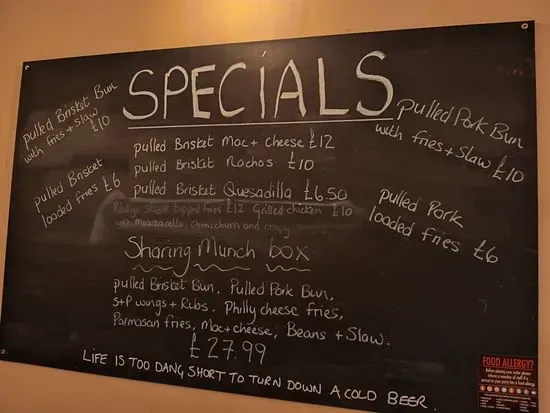 SPECiALS
pulled Brisket Bun
with fries + slaw
£10
pulled Brisket
loaded fries £6
pulled Brisket Mac + cheese £12
pulled Brisket Nachos £10
pulled Brisket Quesadilla £6.50
topped fries £12 Grilled chicken £10
with Mozzarella, Chimichurri and crispy
pulled Pork Bun
with fries + Slaw £10
pulled Pork
loaded fries £6
Sharing Munch box
pulled Brisket Bun, Pulled Pork Bun,
S+P wings + Ribs, Philly cheese fries,
Parmasan fries, Mac + cheese, Beans + Slaw.
£27.99
LIFE IS TOO DANG SHORT TO TURN DOWN A COLD BEER.
FOOD ALLERGY?